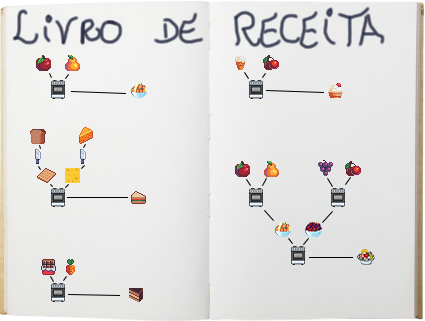 LIVRO DE RECEITA